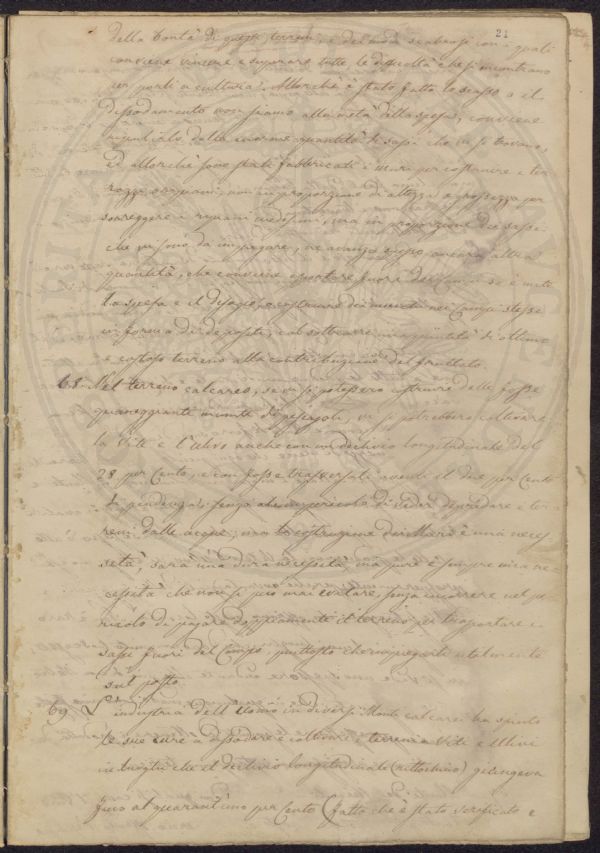 21
della bontà di questi terreni, e dei modi scabrosi con i quali
conviene vincere e superare tutte le difficoltà che si incontrano
per porli a cultura. Allorchè è stato fatto lo scasso o il
dissodamento non siamo alla metà della spesa, conviene
ripulirlo dalla enorme quantità di sassi che vi si trovano,
ed allorchè sono stati fabbricati i muri per costruire e ter
razze e ripiani, non in proporzione di altezza e grossezza per
sorreggere i ripiani medesimi, ma in proporzione dei sassi
che vi sono da impiegare, ne avanza spesso ancora altra
quantità, che conviene asportare fuori dei Campi se è mite
la spesa e il disagio, o costruire dei muri nei Campi stessi
in forma di deposito, e così sottrarre una quantità di ottimo
e costoso terreno alla contribuzione del fruttato.
68. Nel terreno calcareo, se vi si potessero costruire delle fosse
pianeggianti munite di pescajoli, vi si potrebbero coltivare
la Vite e l'ulivo anche con un declivio longitudinale del
28 per Cento, e con fosse trasversali aventi il due per Cento
di pendenza, senza alcun pericolo di veder depredare i ter
reni dalle acque; ma la costruzione dei Muri è una neces
sità, sarà una dura necessità, ma pure è sempre una ne
cessità che non si può mai evitare, senza incorrere nel pe
ricolo di pagare doppiamente il terreno per trasportare i
sassi fuori del Campo piuttosto che impiegarli utilmente
sul posto.
69. L'industria dell'Uomo in diversi Monti calcarei ha spinto
le sue cure a dissodare e coltivare i terreni a Viti e Ulivi
in luoghi che il declivio longitudinale (rittochino) giungeva
fino al quarant'uno per Cento (fatto che è stato verificato e